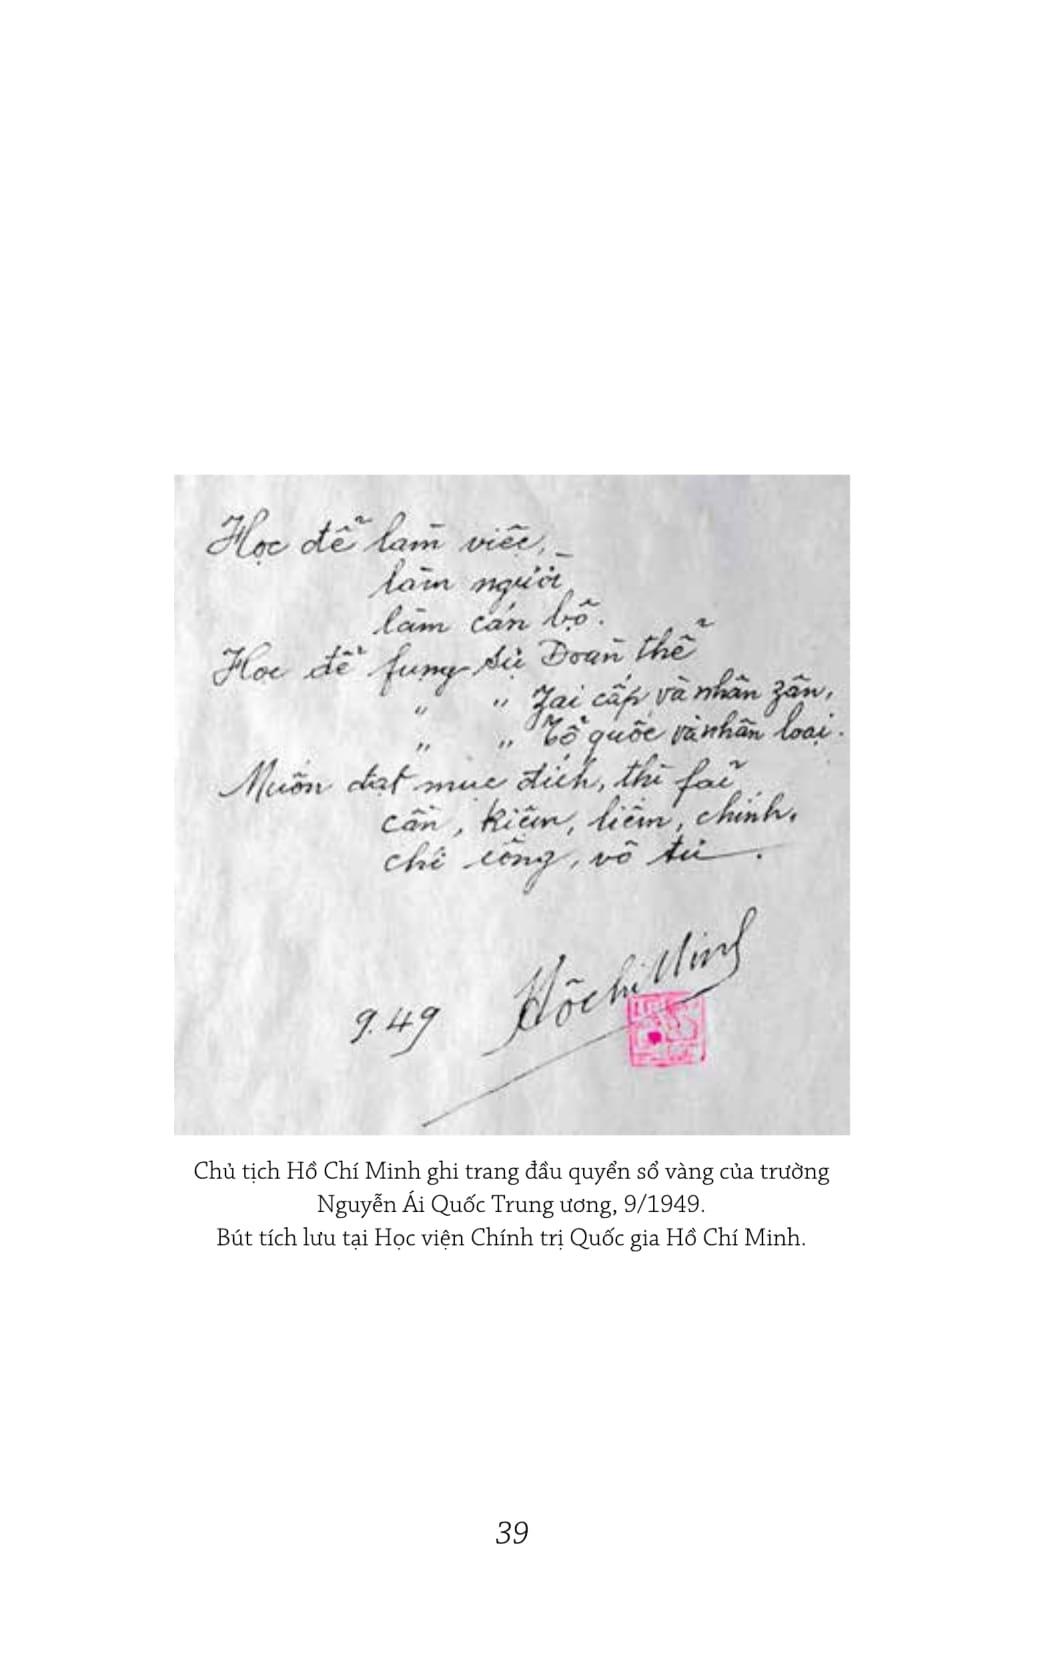 Học để làm việc,
làm người,
làm cán bộ.
Học để fụng sự Đoàn thể
" " Zai cấp và nhân zân,
" " Tổ quốc và nhân loại.
Muốn đạt mục đích, thì fải
cần, kiệm, liêm, chính,
chí công, vô tư.
9.49 Hồ Chí Minh
Chủ tịch Hồ Chí Minh ghi trang đầu quyển sổ vàng của trường
Nguyễn Ái Quốc Trung ương, 9/1949.
Bút tích lưu tại Học viện Chính trị Quốc gia Hồ Chí Minh.
39